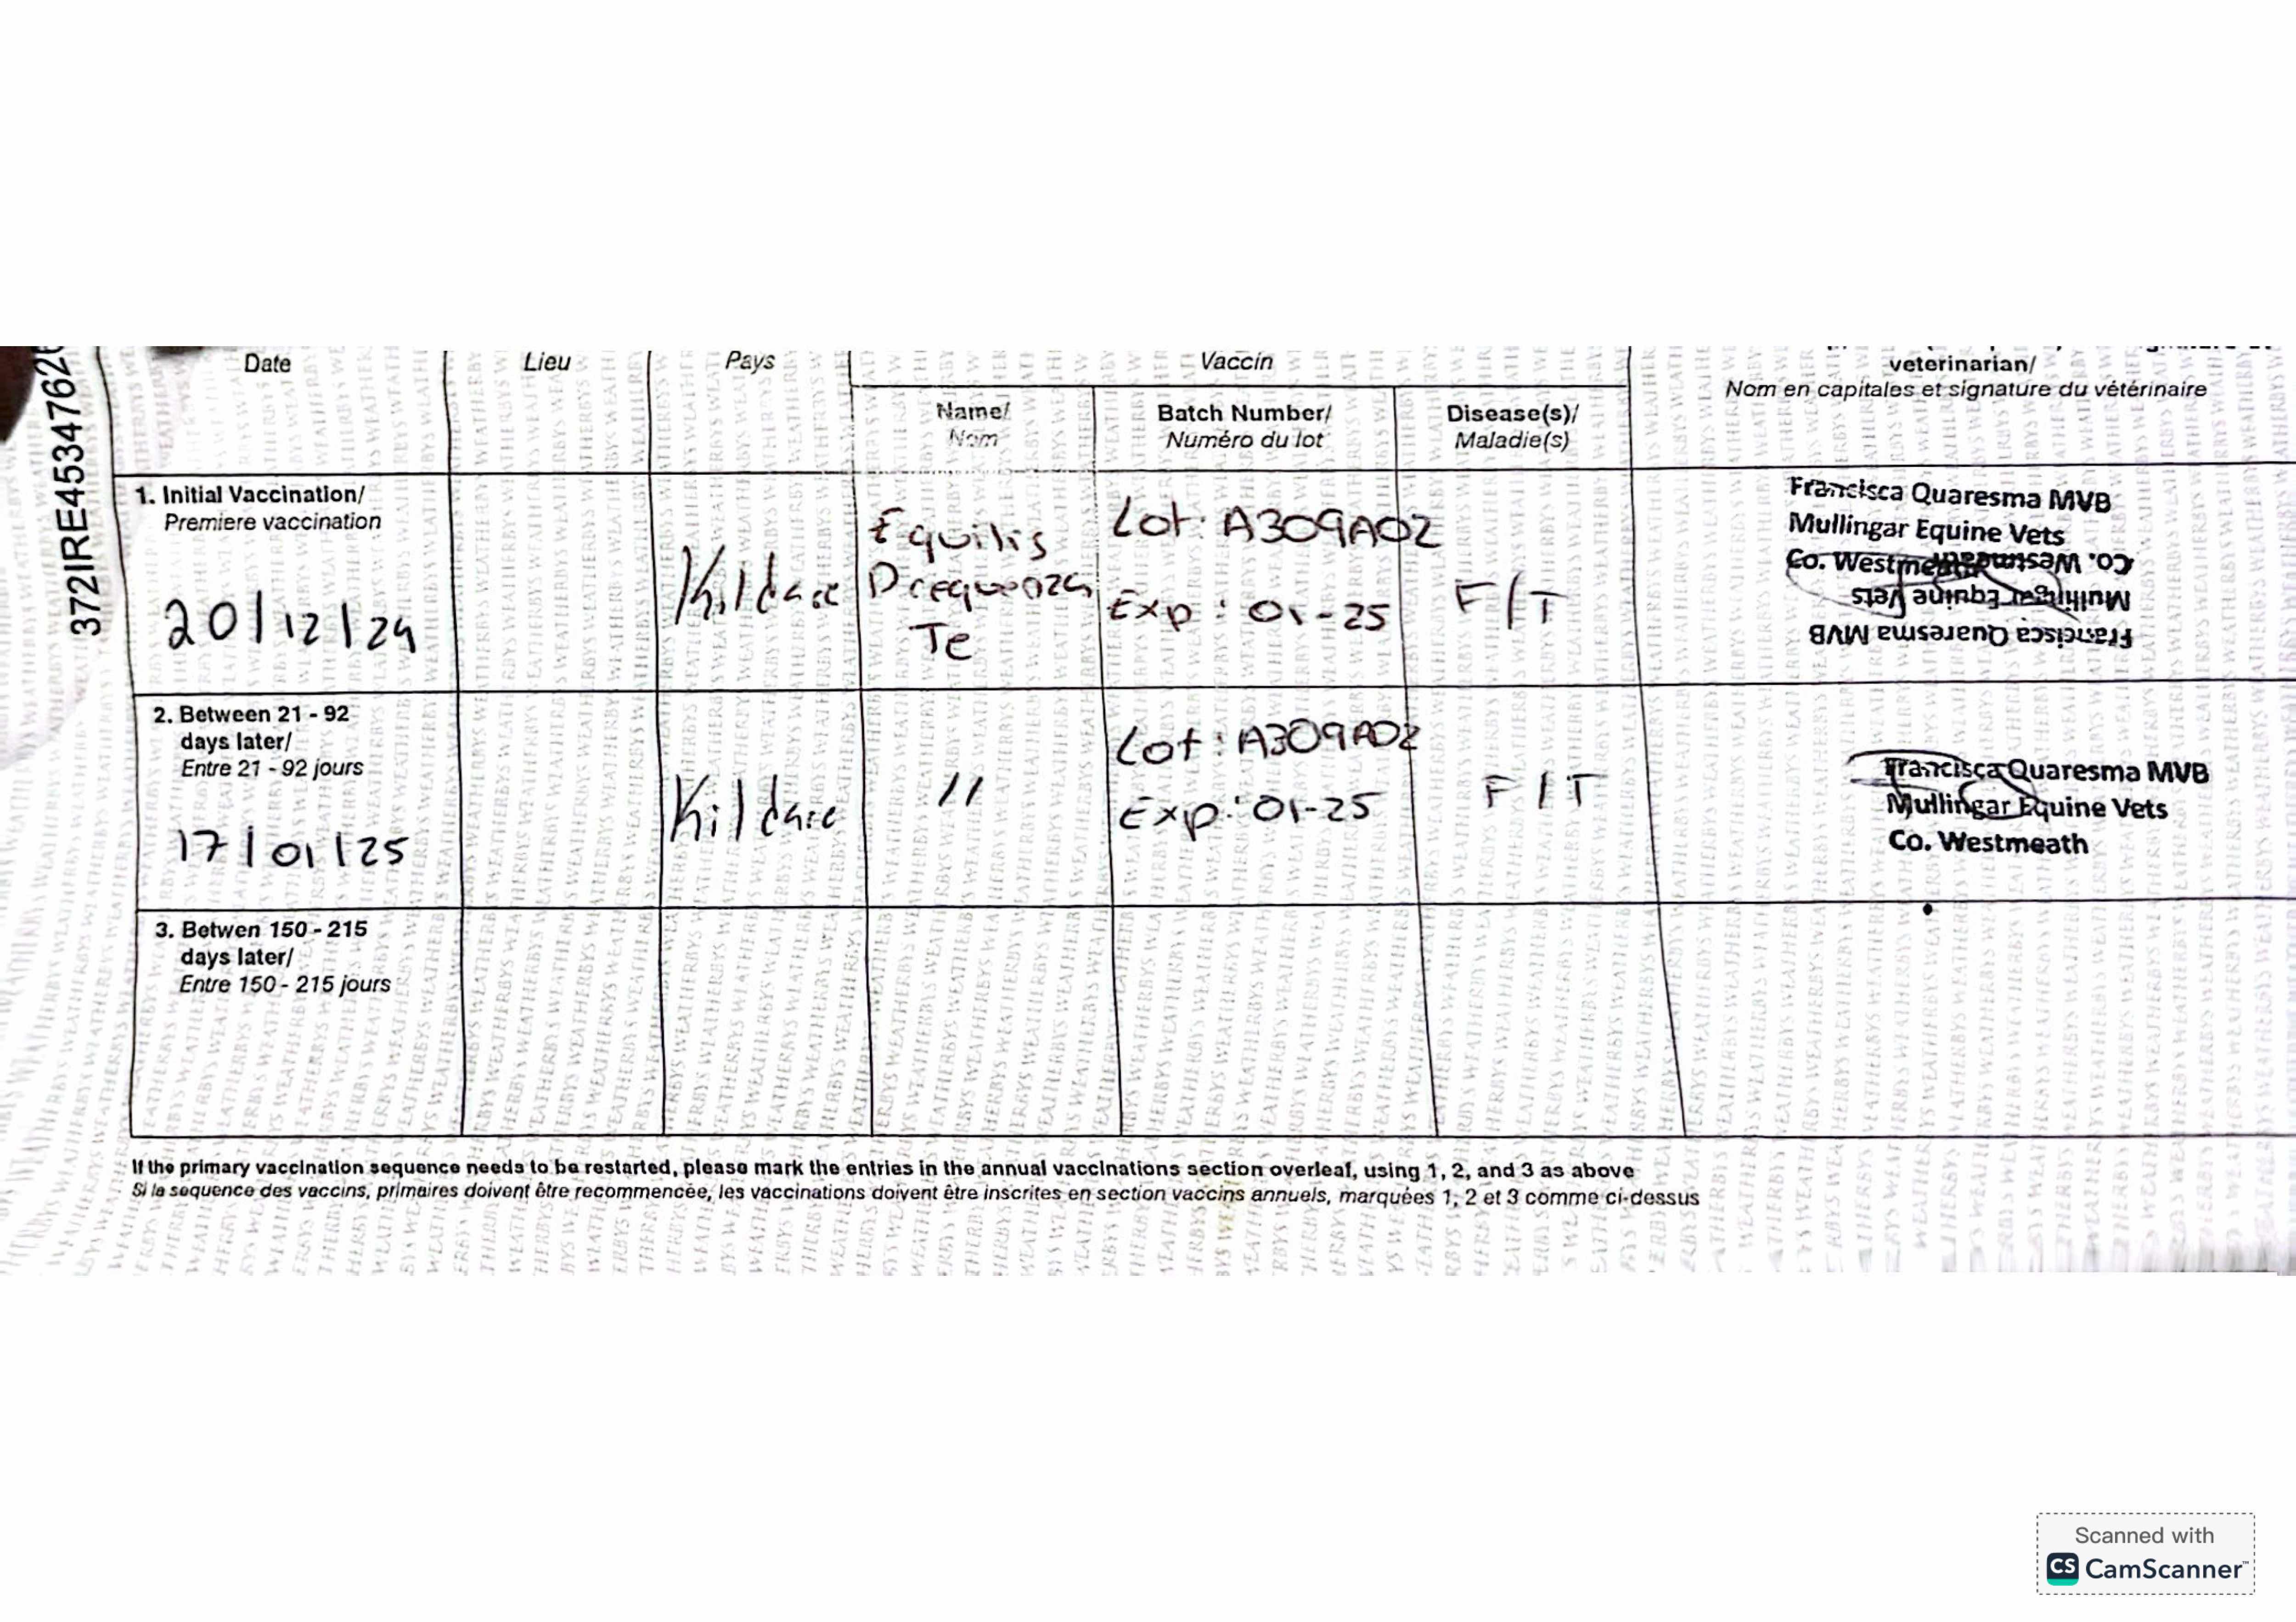 372IRE4534762
Date
Lieu
Pays
Vaccin
veterinarian/
Nom en capitales et signature du vétérinaire
Name/
Nom
Batch Number/
Numéro du lot
Disease(s)/
Maladie(s)
1. Initial Vaccination/
Premiere vaccination
20/12/24
Kildare
Equilis
Prequenza
Te
Lot: A309A02
Exp: 01-25
F/T
Francisca Quaresma MVB
Mullingar Equine Vets
Co. Westmeath
Francisca Quaresma MVB
Mullingar Equine Vets
Co. Westmeath
2. Between 21 - 92
days later/
Entre 21 - 92 jours
17/01/25
Kildare
//
Lot: A309A02
Exp: 01-25
F/T
Francisca Quaresma MVB
Mullingar Equine Vets
Co. Westmeath
3. Betwen 150 - 215
days later/
Entre 150 - 215 jours
If the primary vaccination sequence needs to be restarted, please mark the entries in the annual vaccinations section overleaf, using 1, 2, and 3 as above
Si la sequence des vaccins, primaires doivent être recommencée, les vaccinations doivent être inscrites en section vaccins annuels, marquées 1, 2 et 3 comme ci-dessus
Scanned with
CS CamScanner